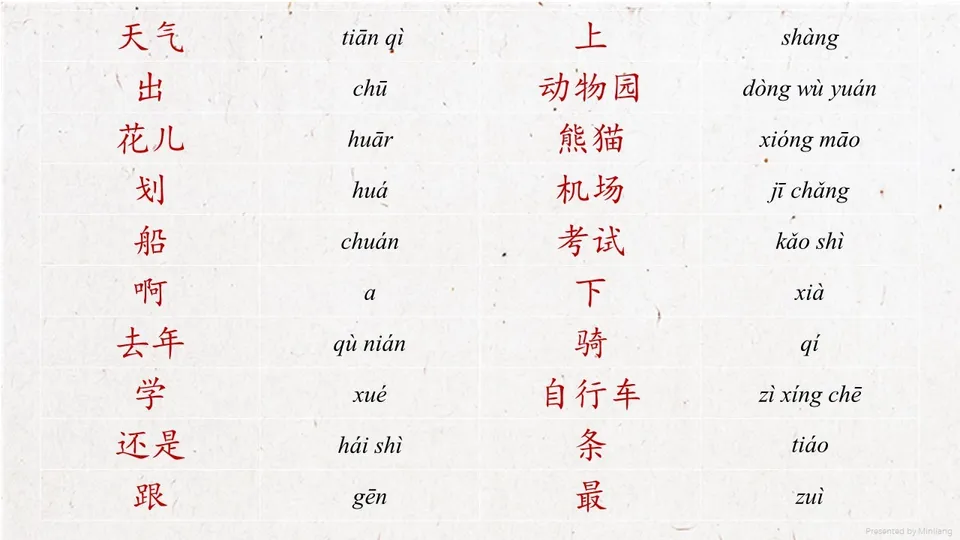 天气 tiān qì 上 shàng
出 chū 动物园 dòng wù yuán
花儿 huār 熊猫 xióng māo
划 huá 机场 jī chǎng
船 chuán 考试 kǎo shì
啊 a 下 xià
去年 qù nián 骑 qí
学 xué 自行车 zì xíng chē
还是 hái shì 条 tiáo
跟 gēn 最 zuì
Presented by Minjieng